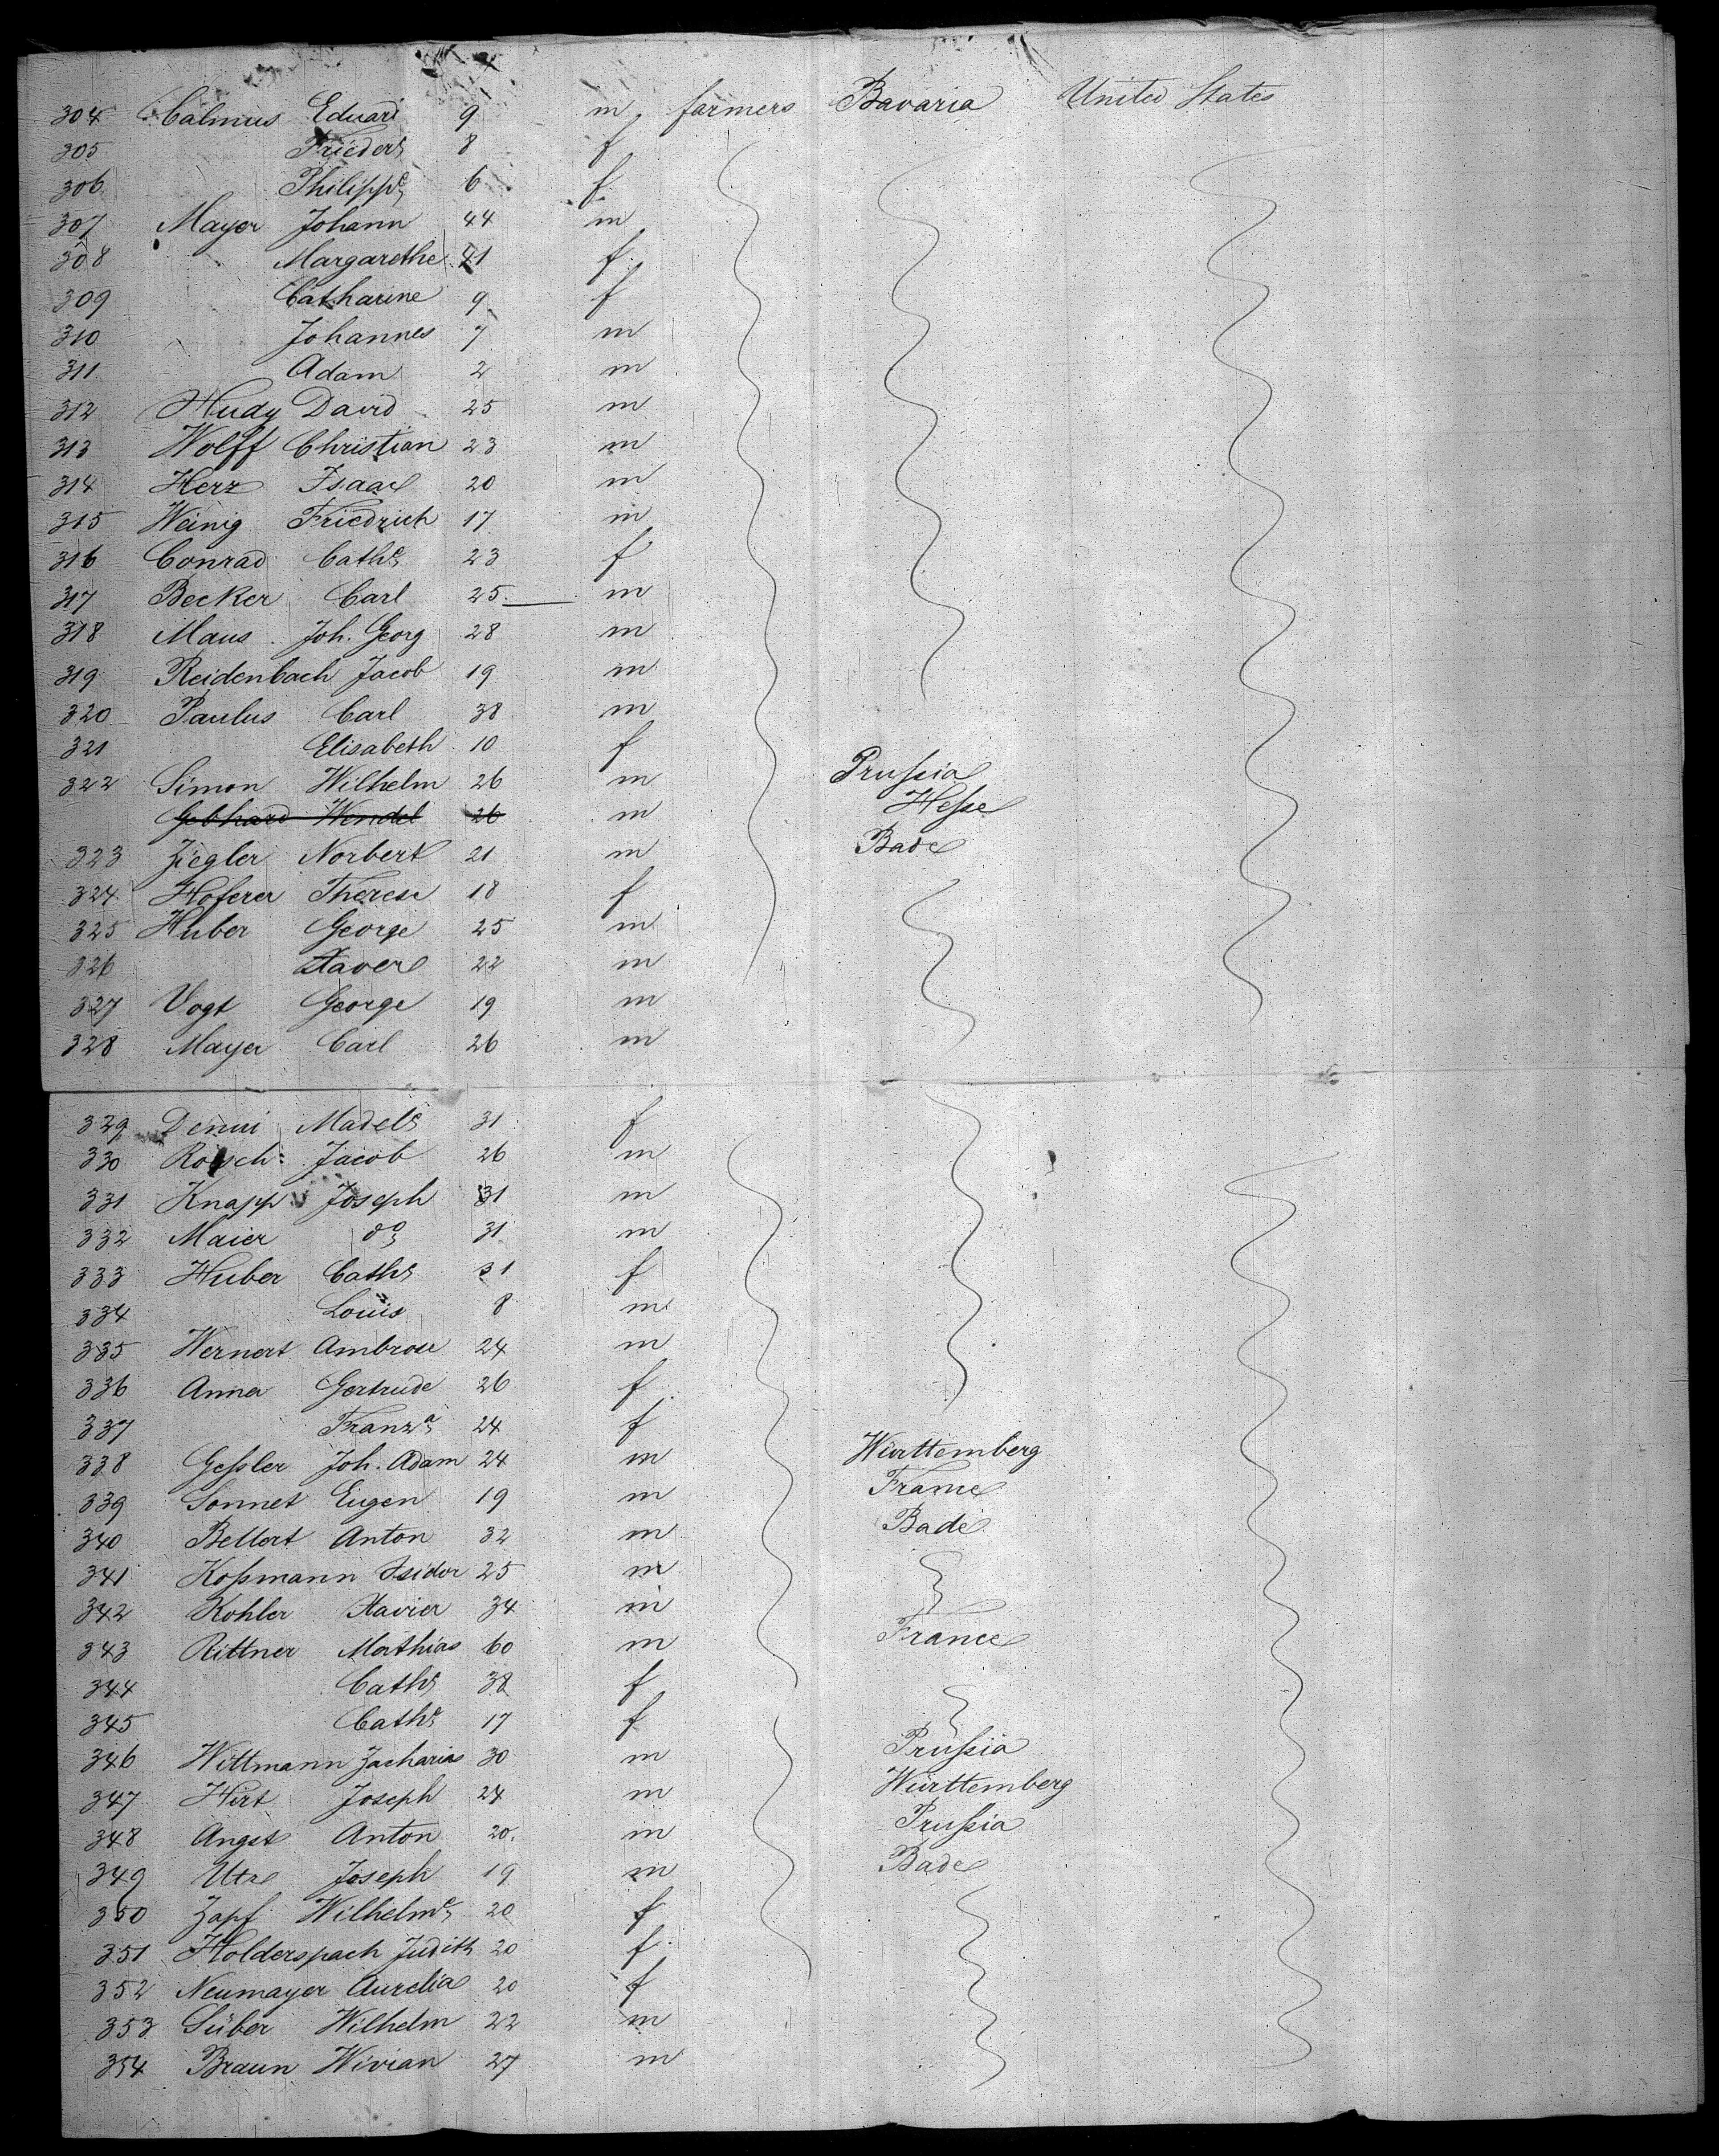 304 Calmus Eduard 9 m farmers Bavaria United States
305 Frieder^e 8 f
306 Philipp^e 6 f
307 Mayer Johann 44 m
308 Margarethe 41 f
309 Catharine 9 f
310 Johannes 7 m
311 Adam 2 m
312 Hudy David 25 m
313 Wolff Christian 23 m
314 Herz Isaac 20 m
315 Weinig Friedrich 17 m
316 Conrad Cath^e 23 f
317 Becker Carl 25 m
318 Maus Joh. Georg 28 m
319 Reidenbach Jacob 19 m
320 Paulus Carl 38 m
321 Elisabeth 10 f
322 Simon Wilhelm 26 m Prußia
Gebhard Wendel 26 m Heße
323 Ziegler Norbert 21 m Bade
324 Hoferer Therese 18 f
325 Huber George 25 m
326 Xaver 22 m
327 Vogt George 19 m
328 Mayer Carl 26 m
329 Madel^e 31 f
330 Jacob 26 m
331 Knapp Joseph 31 m
332 Maier d^o 31 m
333 Huber Cath^e 31 f
334 Louis 8 m
335 Wernert Ambrose 24 m
336 Anna Gertrude 26 f
337 Franz^a 24 f
338 Geßler Joh. Adam 24 m Württemberg
339 Sonnet Eugen 19 m France
340 Bellert Anton 32 m Bade
341 Koßmann Isidor 25 m
342 Kohler Xavier 34 m
343 Rittner Mathias 60 m France
344 Cath^e 38 f
345 Cath^e 17 f
346 Wittmann Zacharias 30 m Prußia
347 Hirt Joseph 24 m Württemberg
348 Angst Anton 20. m Prußia
349 Utz Joseph 19 m Bade
350 Zapf Wilhelm^e 20 f
351 Holderspach Judith 20 f
352 Neumayer Aurelia 20 f
353 Süber Wilhelm 22 m
354 Braun Wivian 27 m